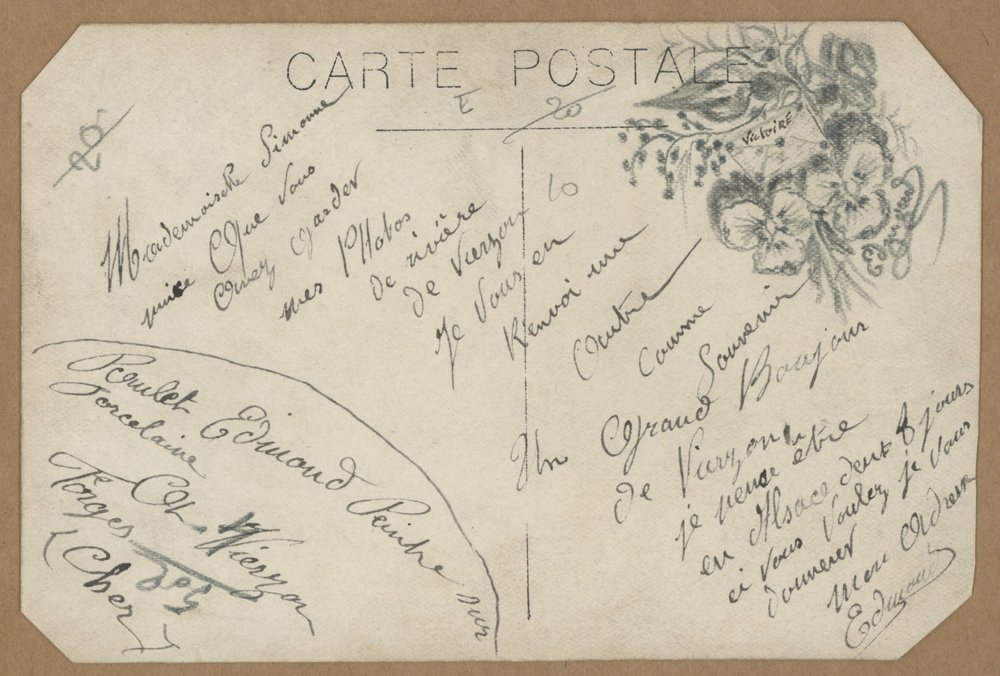 CARTE POSTALE
E
20
20
10
Victoire
Mademoiselle Simonne
Que vous
avez garder
mes Photos
de rivière
de Vierzon
je vous en
Renvoi une
Autre
comme
Souvenir
Un Grand Bonjour
de Vierzon
je pense être
en Alsace dent 8 jours
si vous voulez je vous
donnerer
mon Adresse
Edmond
Poulet Edmond Peintre sur
Porcelaine
à Vierzon
Forges
(Cher)